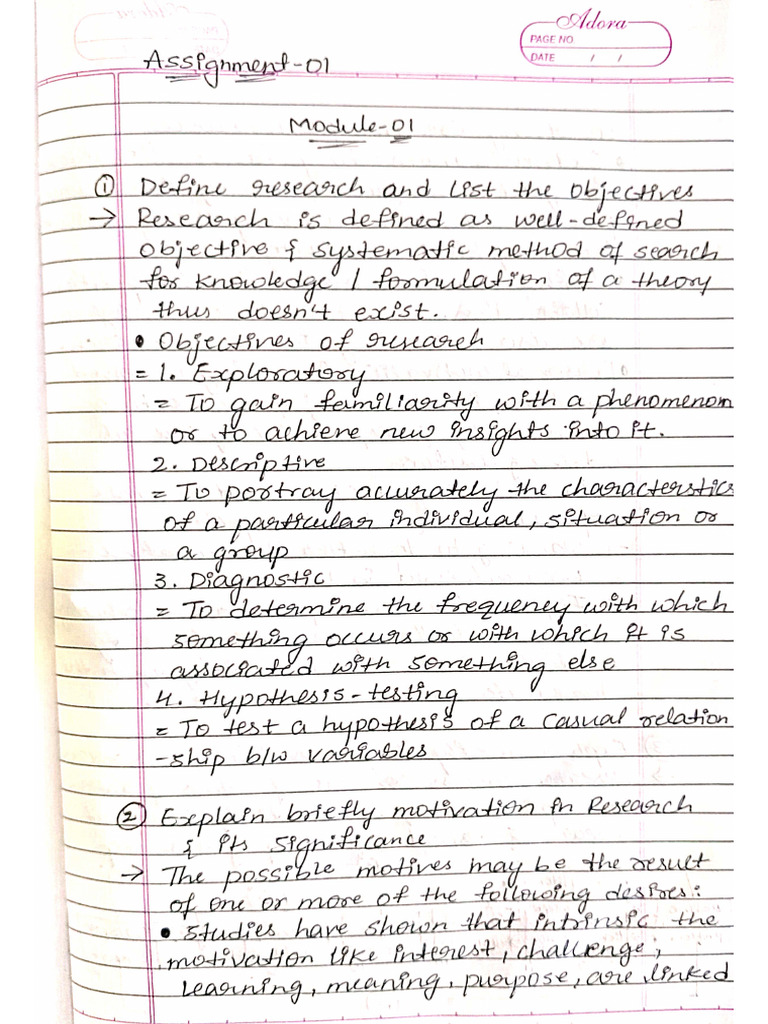 Adora
PAGE NO.
DATE / /
Assignment-01
Module-01
① Define research and list the objectives
→ Research is defined as well-defined
objective & systematic method of search
for knowledge / formulation of a theory
thus doesn't exist.
• Objectives of research
= 1. Exploratory
= To gain familiarity with a phenomenom
or to achieve new insights into it.
2. Descriptive
= To portray accurately the characterstics
of a particular individual, situation or
a group
3. Diagnostic
= To determine the frequency with which
something occurs or with which it is
associated with something else
4. Hypothesis-testing
= To test a hypothesis of a casual relation
-ship b/w variables
② Explain briefly motivation in Research
& its significance
→ The possible motives may be the result
of one or more of the following desires:
• Studies have shown that intrinsic the
motivation like interest, challenge,
learning, meaning, purpose, are linked